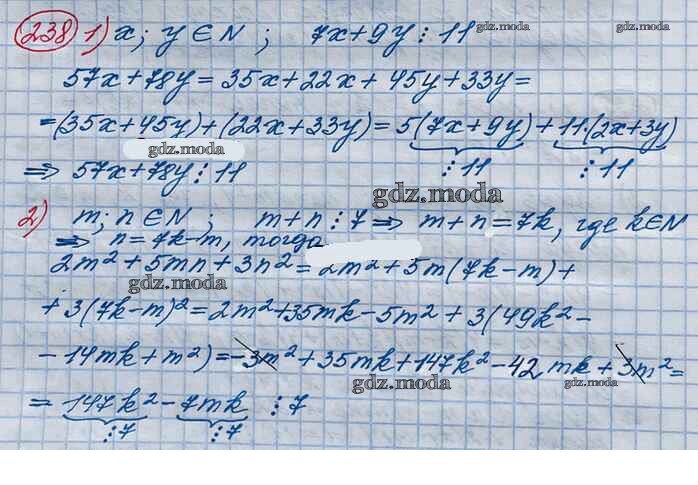 238 1) x; y ∈ N ; 7x+9y ⋮ 11
gdz.moda
57x+78y = 35x+22x+ 45y+33y=
=(35x+45y)+(22x+33y)= 5(7x+9y)+11·(2x+3y)
gdz.moda
⋮11 ⋮11
⇒ 57x+78y ⋮ 11
gdz.moda
2) m; n ∈ N ; m+n ⋮ 7 ⇒ m+n=7k, где k∈N
⇒ n=7k-m, тогда
2m²+5mn+3n²=2m²+5m(7k-m)+
gdz.moda
+3(7k-m)²=2m²+35mk-5m²+3(49k²-
-14mk+m²)=-3m²+35mk+147k²-42mk+3m²=
gdz.moda gdz.moda
= 147k²-7mk ⋮7
⋮7 ⋮7
gdz.moda